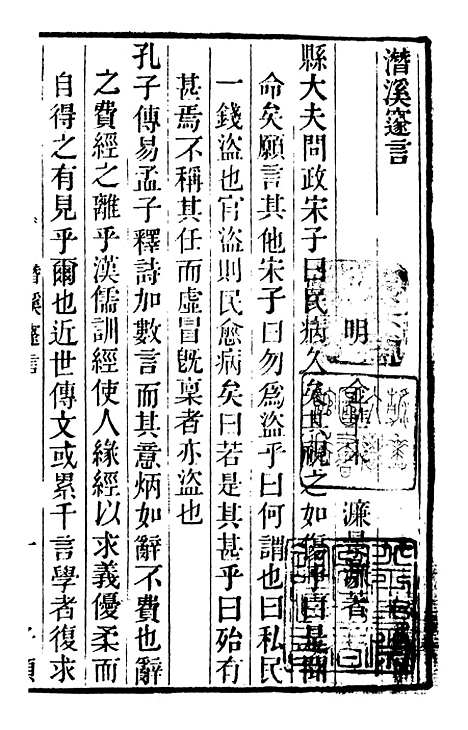 潛溪邃言
明 金華宋 濂景濂著
縣大夫問政宋子曰民病久矣其視之如傷乎曰是聞
命矣願言其他宋子曰勿為盜乎曰何謂也曰私民
一錢盜也官盜則民愈病矣曰若是其甚乎曰殆有
甚焉不稱其任而虛冒旣稟者亦盜也
孔子傳易孟子釋詩加數言而其意炳如辭不費也辭
之費經之離乎漢儒訓經使人緣經以求義優柔而
自得之有見乎爾也近世傳文或累千言學者復求
潛溪邃言
一